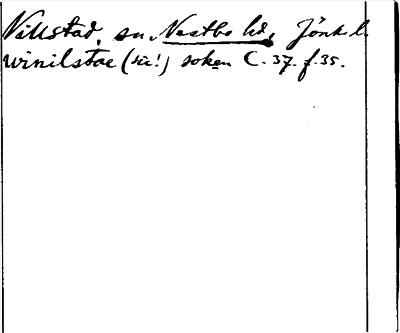 Villstad, sn, Västbo hd, Jönk. l.
winilstae (sic!) soken C. 37. f. 35.